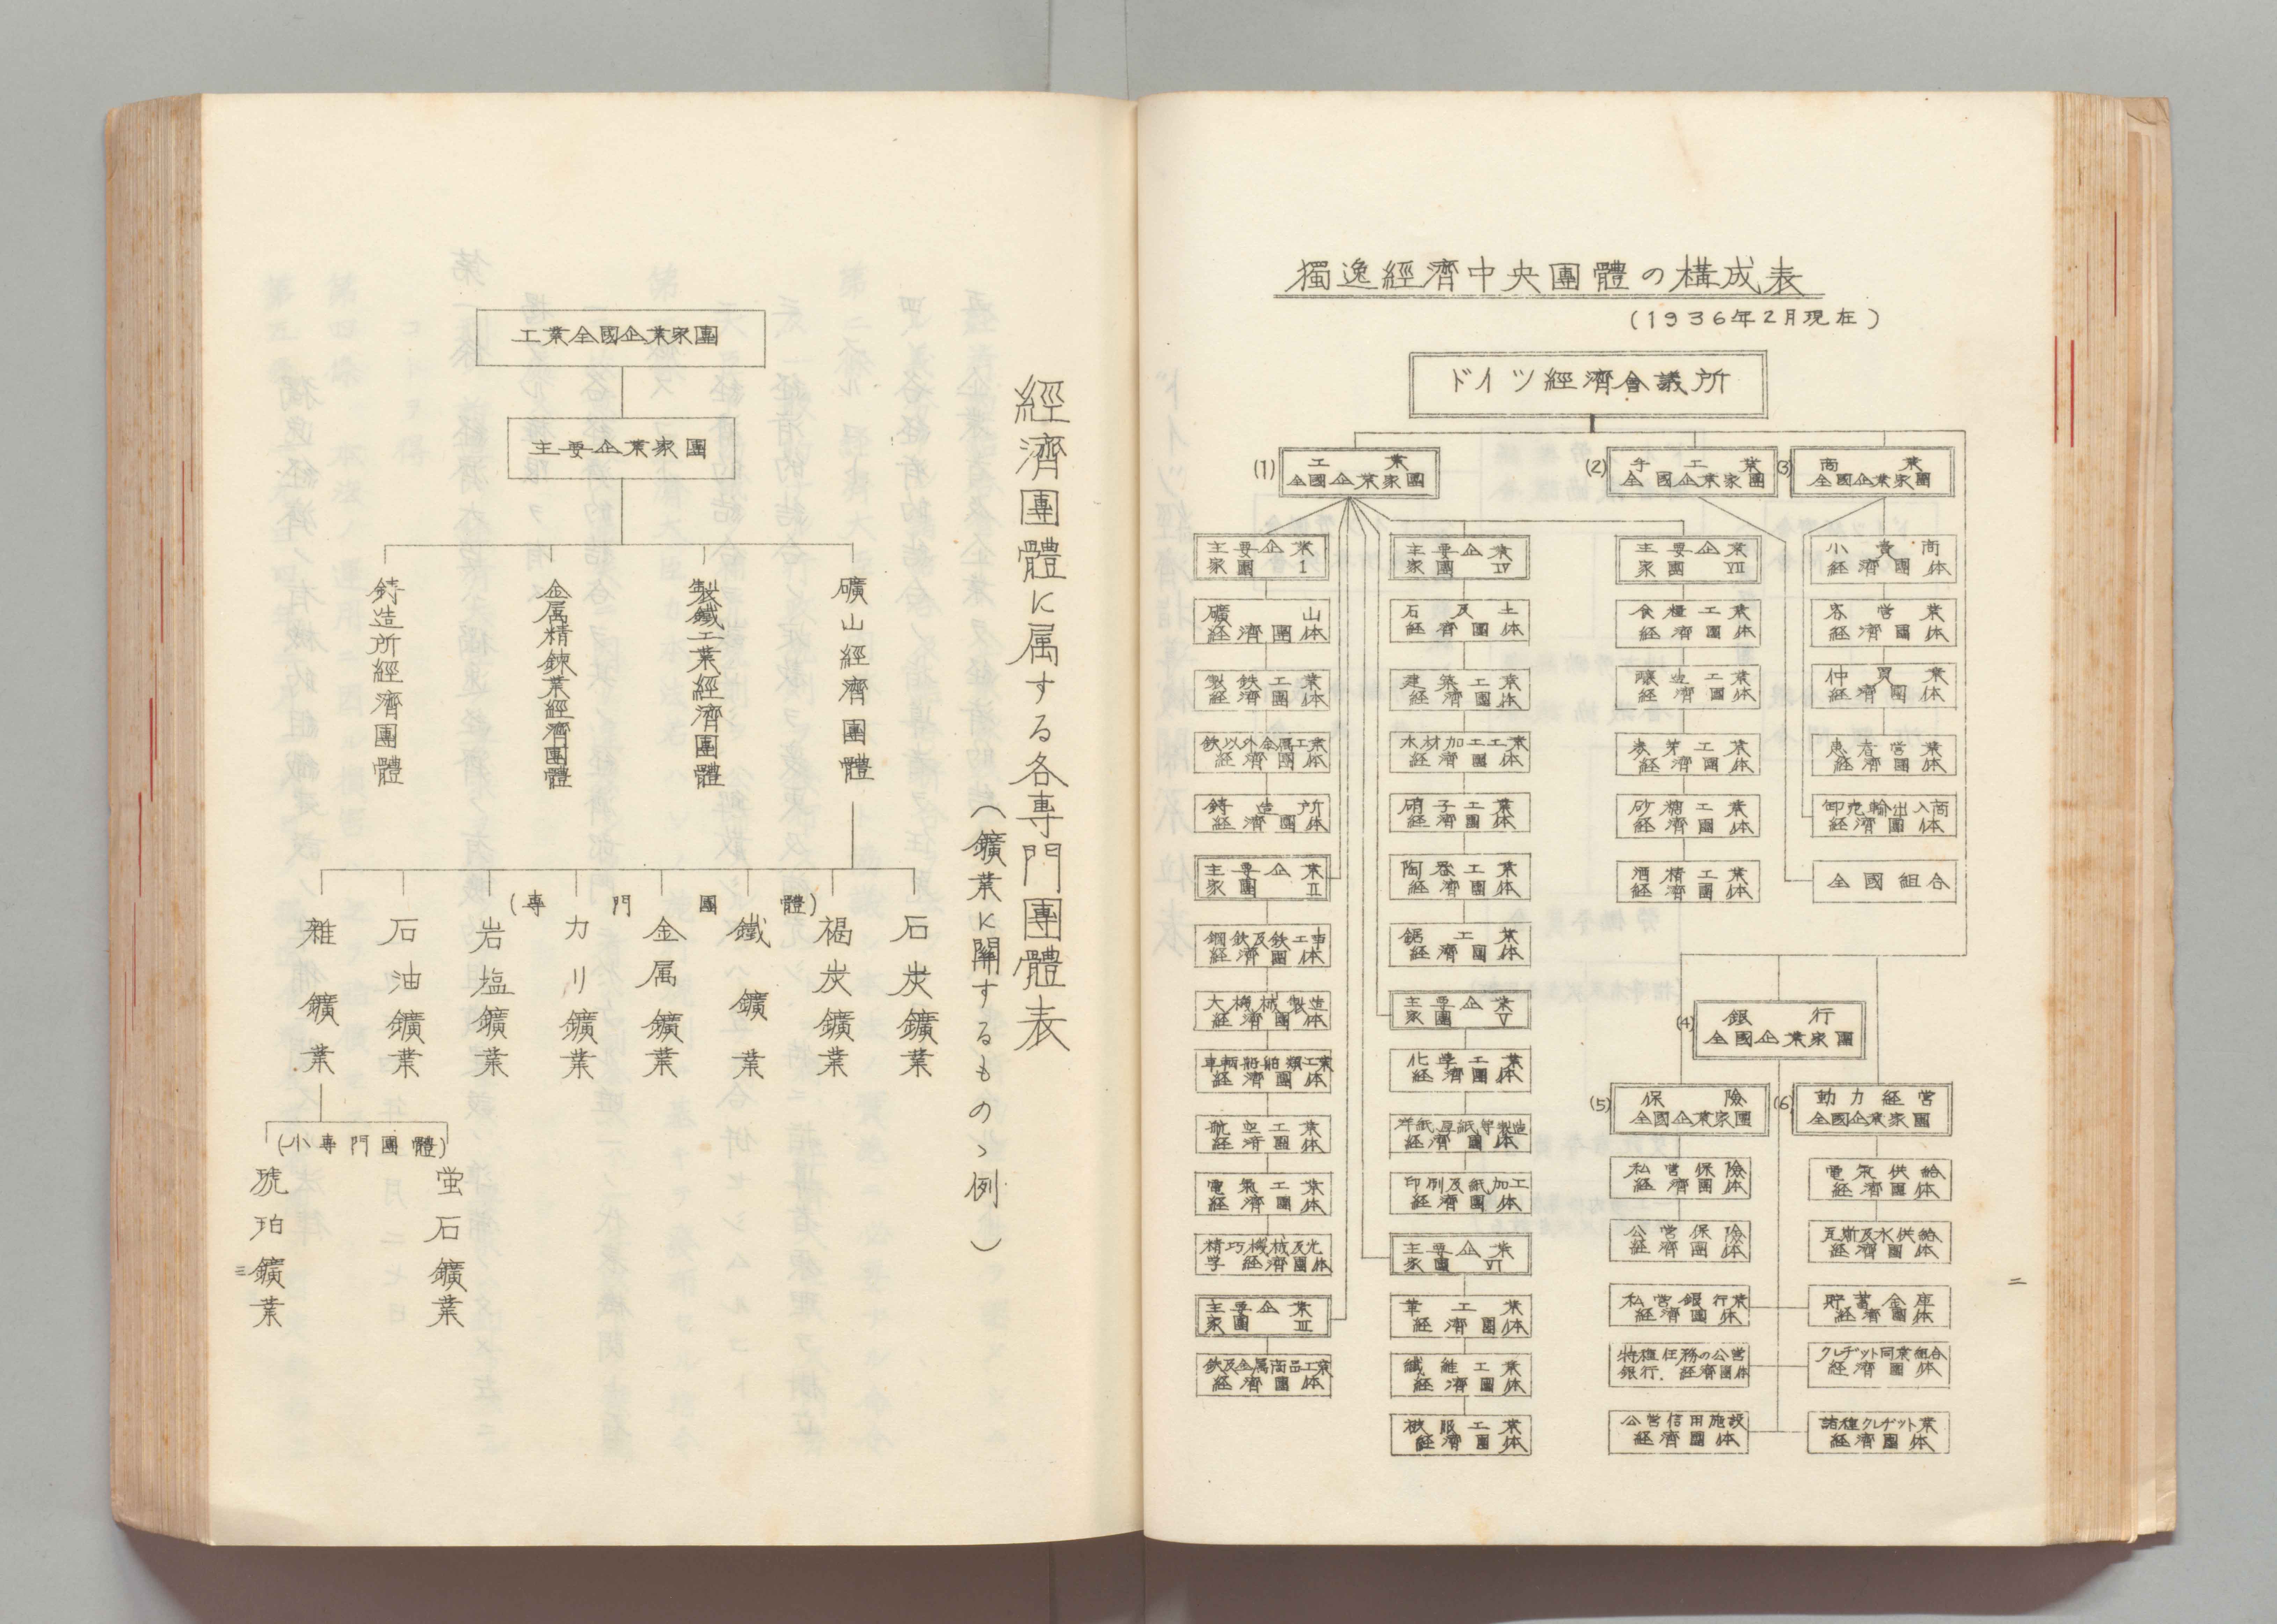 獨逸經濟中央團體の構成表
(1936年2月現在)
ドイツ經濟會議所
(1)
工業
全國企業家團
(2)
手工業
全國企業家團
(3)
商業
全國企業家團
主要企業
家團 I
礦山
経濟團体
製鉄工業
経濟團体
鉄以外金属工業
経濟團体
鋳造所
経濟團体
主要企業
家團 II
鋼鉄及鉄工事
経濟團体
大機械製造
経濟團体
車輌船舶類工業
経濟團体
航空工業
経済團体
電氣工業
経濟團体
精巧機械及光
学 経濟團体
主要企業
家團 III
鉄及金属商品工業
経濟團体
主要企業
家團 IV
石及土
経濟團体
建築工業
経濟團体
木材加工工業
経濟團体
硝子工業
経濟團体
陶器工業
経濟團体
鋸工業
経濟團体
主要企業
家團 V
化學工業
経濟團体
洋紙厚紙等製造
経濟團体
印刷及紙加工
経濟團体
主要企業
家團 VI
革工業
経濟團体
纎維工業
経濟團体
被服工業
経濟團体
主要企業
家團 VII
食糧工業
経濟團体
醸造工業
経濟團体
麦芽工業
経濟團体
砂糖工業
経濟團体
酒精工業
経濟團体
小賣商
経濟團体
客営業
経濟團体
仲買業
経濟團体
営業
経濟團体
卸売輸出入商
経濟團体
全國組合
(4)
銀行
全國企業家團
(5)
保險
全國企業家團
(6)
動力経営
全國企業家團
私営保險
経濟團体
公営保險
経濟團体
私営銀行業
経濟團体
特種任務の公営
銀行. 経濟團体
公営信用施設
経濟團体
電氣供給
経濟團体
瓦斯及水供給
経濟團体
貯蓄金庫
経濟團体
クレヂット同業組合
経濟團体
諸種クレヂット業
経濟團体
二
經濟團體に属する各専門團體表
(鑛業に關するものゝ例)
工業全國企業家團
主要企業家團
礦山經濟團體
製鐵工業經濟團體
金属精錬業經濟團體
鋳造所經濟團體
(専門團體)
石炭鑛業
褐炭鑛業
鐵鑛業
金属鑛業
カリ鑛業
岩塩鑛業
石油鑛業
雜鑛業
(小専門團體)
蛍石鑛業
琥珀鑛業
三